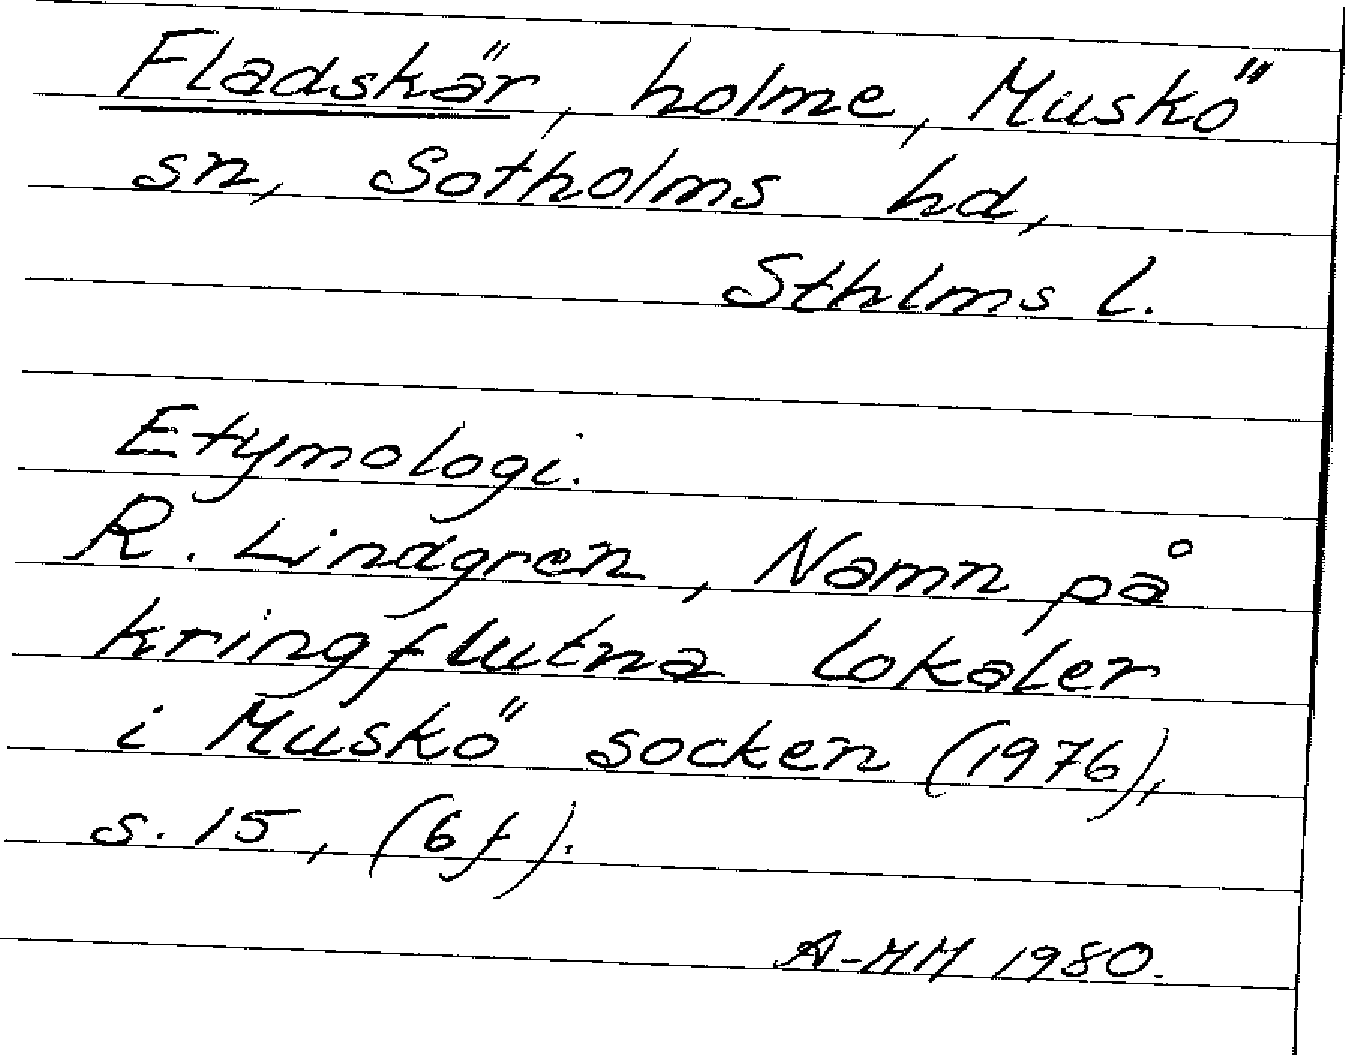 Fladskär, holme, Muskö
sn, Sotholms hd,
Sthlms l.
Etymologi.
R. Lindgren, Namn på
kringflutna lokaler
i Muskö socken (1976),
s. 15, (6f).
A-MM 1980.